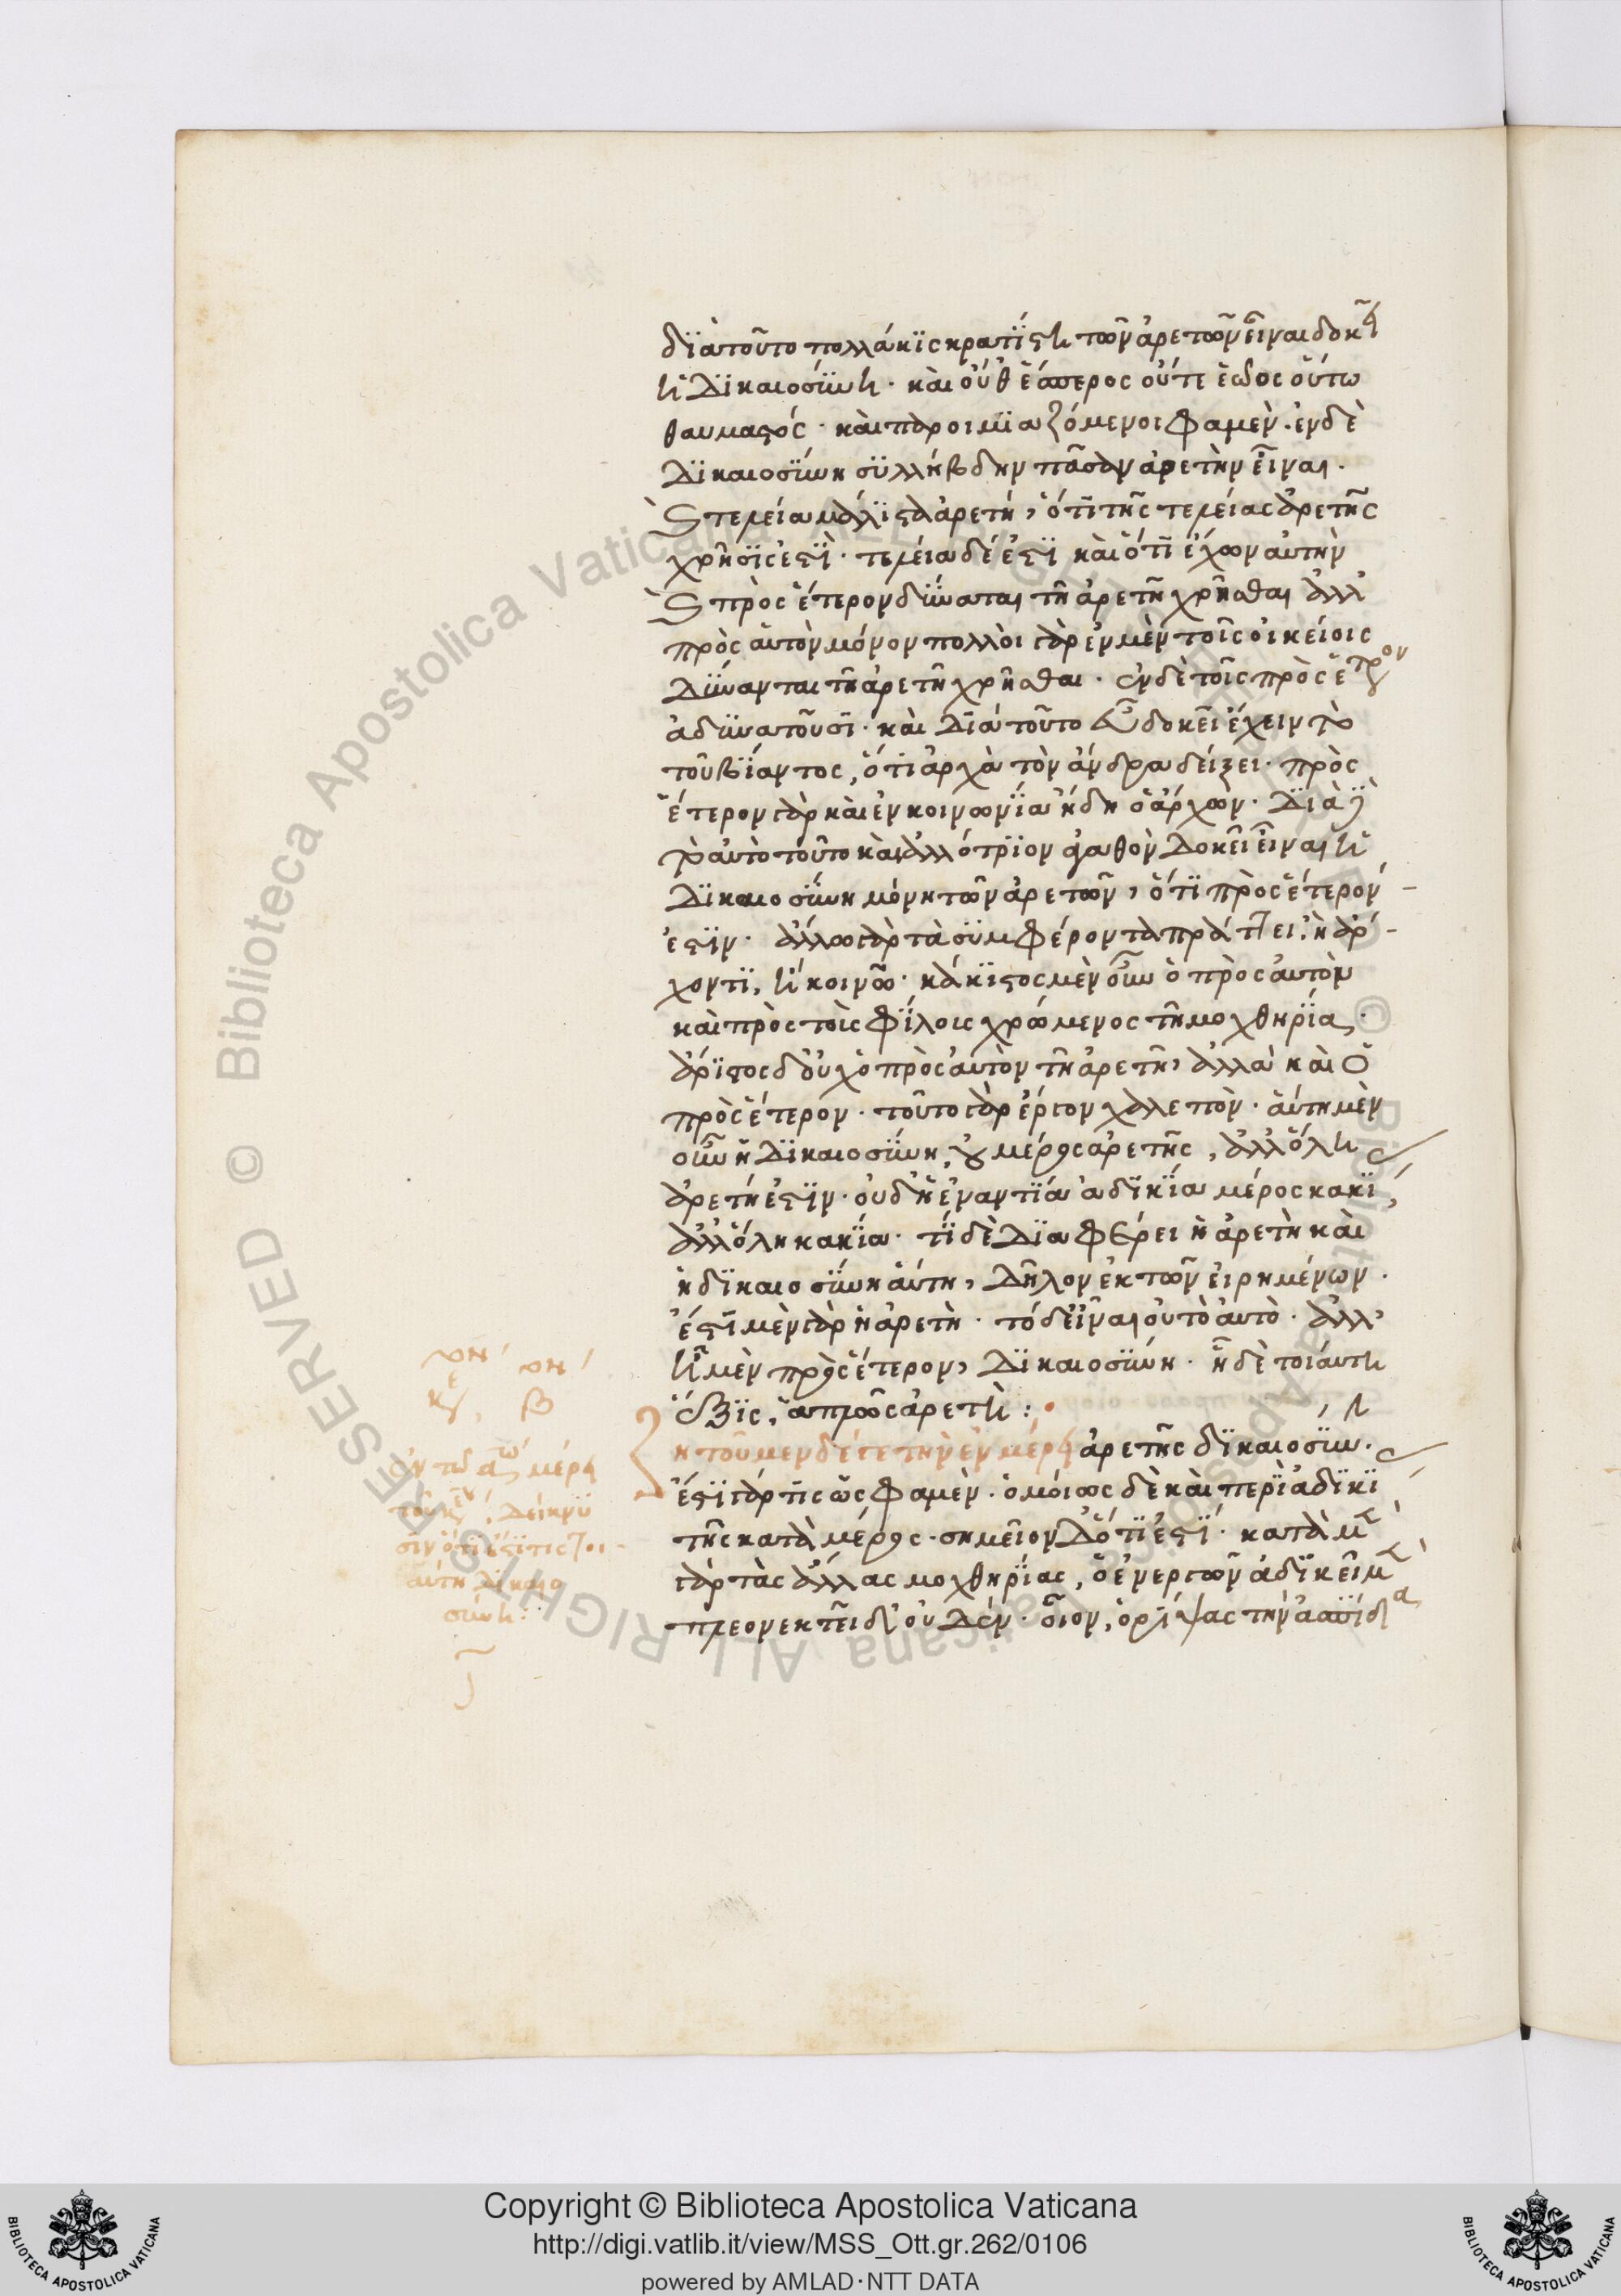 διὰ τοῦτο πολλάκις κρατίστη τῶν ἀρετῶν εἶναι δοκεῖ
ἡ δικαιοσύνη · καὶ οὔθ ἕσπερος οὔτε ἑῶος οὕτω
θαυμαστός · καὶ παροιμιαζόμενοι φαμὲν · ἐν δὲ
δικαιοσύνη συλλήβδην πᾶσαν ἀρετὴν εἶναι ·
καὶ τελεία μάλιστα ἀρετή, ὅτι τῆς τελείας ἀρετῆς
χρῆσις ἐστὶ · τελεία δέ ἐστι καὶ ὅτι ἔχων αὐτὴν
καὶ πρὸς ἕτερον δύναται τῆ ἀρετῆ χρῆσθαι ἀλλ
πρὸς αὑτὸν μόνον πολλοὶ γὰρ ἐν μὲν τοῖς οἰκείοις
δύνανται τῆ ἀρετῆ χρῆσθαι · ἐν δὲ τοῖς πρὸς ἕτερον
ἀδυνατοῦσι · καὶ διὰ τοῦτο εὖ δοκεῖ ἔχειν τὸ
τοῦ βίαντος, ὅτι ἀρχὰ τὸν ἄνδρα δείξει · πρὸς
ἕτερον γὰρ καὶ ἐν κοινωνία ἤδη ὁ ἄρχων · διὰ δὲ
τὸ αὐτὸ τοῦτο καὶ ἀλλότριον ἀγαθὸν δοκεῖ εἶναι ἡ
δικαιοσύνη μόνη τῶν ἀρετῶν, ὅτι πρὸς ἕτερόν
ἐστιν · ἄλλω γὰρ τὰ συμφέροντα πράττει, ἢ ἄρ-
χοντι, ἢ κοινῶ · κάκιστος μὲν οὖν ὁ πρὸς αὑτὸν
καὶ πρὸς τοὺς φίλοις χρώμενος τῆ μοχθηρία ·
ἄριστος δ οὐχ ὁ πρὸς αὑτὸν τῆ ἀρετῆ, ἀλλὰ καὶ ὁ
πρὸς ἕτερον · τοῦτο γὰρ ἔργον χαλεπὸν · αὕτη μὲν
οὖν ἡ δικαιοσύνη, οὐ μέρος ἀρετῆς, ἀλλ ὅλη
ἀρετή ἐστιν · οὐδ ἡ ἐναντία ἀδικία μέρος κακί
ἀλλ ὅλη κακία · τί δὲ διαφέρει ἡ ἀρετὴ καὶ
ἡ δικαιοσύνη αὕτη, δῆλον ἐκ τῶν εἰρημένων ·
ἔστι μὲν γὰρ ἡ ἀρετὴ · τό δ εἶναι οὐ τὸ αὐτὸ · ἀλλ
ἧ μὲν πρὸς ἕτερον, δικαιοσύνη · ἧ δὲ τοιαύτη
ἕξις, ἁπλῶς ἀρετὴ :
ητοῦμεν δέ γε τὴν ἐν μέρει ἀρετῆς δικαιοσύν ·
ἔστι γάρ τις ὥς φαμὲν · ὁμοίως δὲ καὶ περὶ ἀδικί
τῆς κατὰ μέρος · σημεῖον δ ὅτι ἐστί · κατὰ μὲν
γὰρ τὰς ἄλλας μοχθηρίας, ὁ ἐνεργῶν ἀδικεῖ μὲν
πλεονεκτεῖ δ οὐδὲν · οἷον, ὁ ῥίψας τὴν ἀσπίδα
β
μέρει
δείκνυ
σιν ὅτι ἔστι τις τοι-
αύτη δικαιο
σύνη :
Copyright © Biblioteca Apostolica Vaticana
http://digi.vatlib.it/view/MSS_Ott.gr.262/0106
powered by AMLAD·NTT DATA
BIBLIOTECA APOSTOLICA VATICANA
BIBLIOTECA APOSTOLICA VATICANA
© Biblioteca Apostolica Vaticana ALL RIGHTS RESERVED